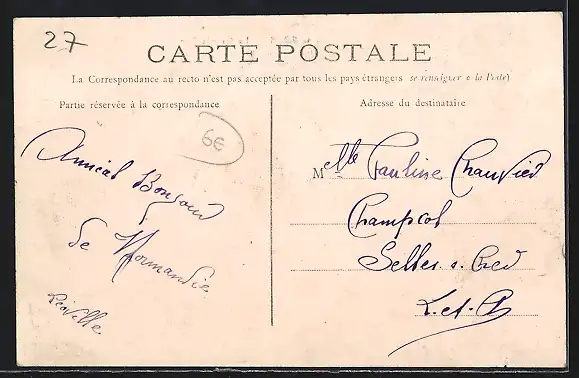 27
CARTE POSTALE
La Correspondance au recto n'est pas acceptée par tous les pays étrangers (se renseigner à la Poste)
Partie réservée à la correspondance
Adresse du destinataire
6€
Amical Bonjour
de Normandie
Mlle Pauline
Champcol
Selles s. Cher
L. et. Ch